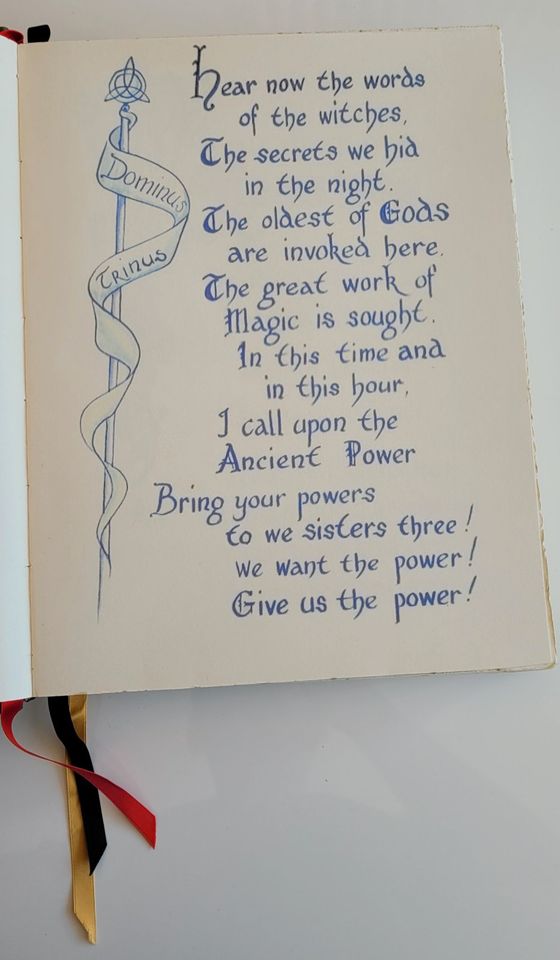 Dominus
Trinus
Hear now the words
of the witches,
The secrets we hid
in the night.
The oldest of Gods
are invoked here.
The great work of
Magic is sought.
In this time and
in this hour,
I call upon the
Ancient Power
Bring your powers
to we sisters three!
we want the power!
Give us the power!